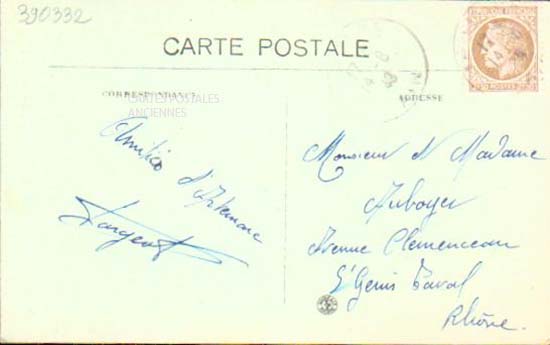 390332
CARTE POSTALE
CORRESPONDANCE
CARTES POSTALES
ANCIENNES
ADRESSE
Amitiés d'Artemare
Monsieur et Madame
Auboyer
Avenue Clemenceau
St Genis Laval
Rhône.